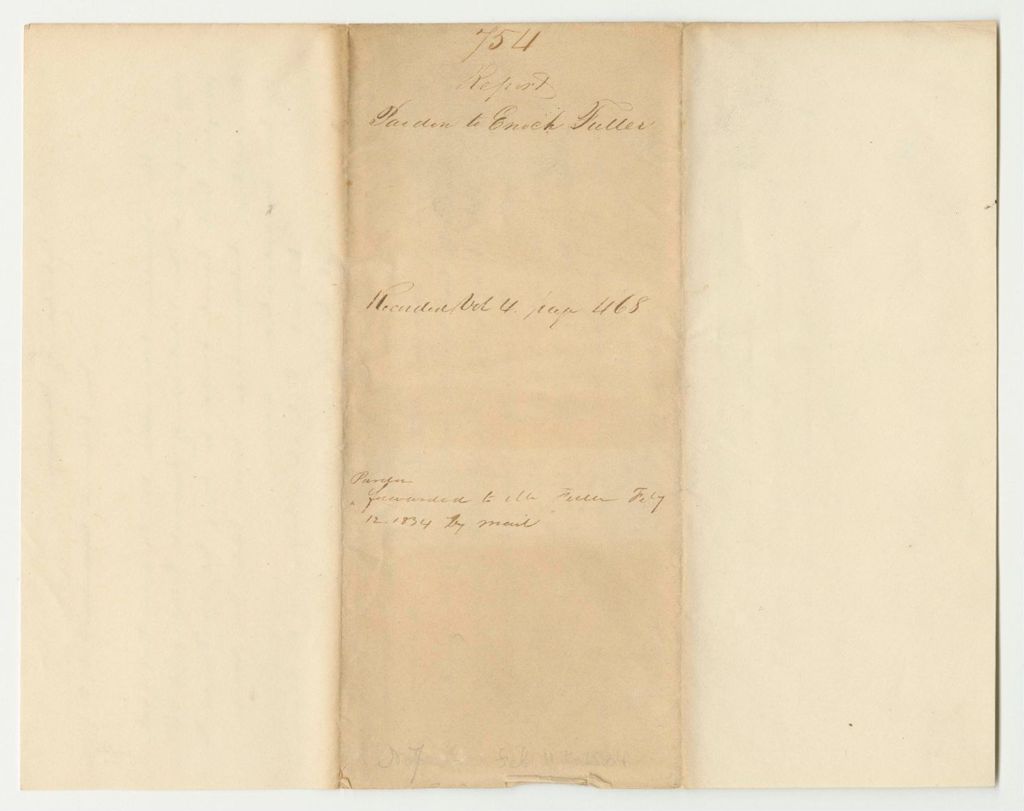 754
Report
Pardon to Enoch Fuller
Recorded Vol 4. page 468
Pardon
forwarded to Mr Fuller Feby
12. 1834 by mail
Feb 11